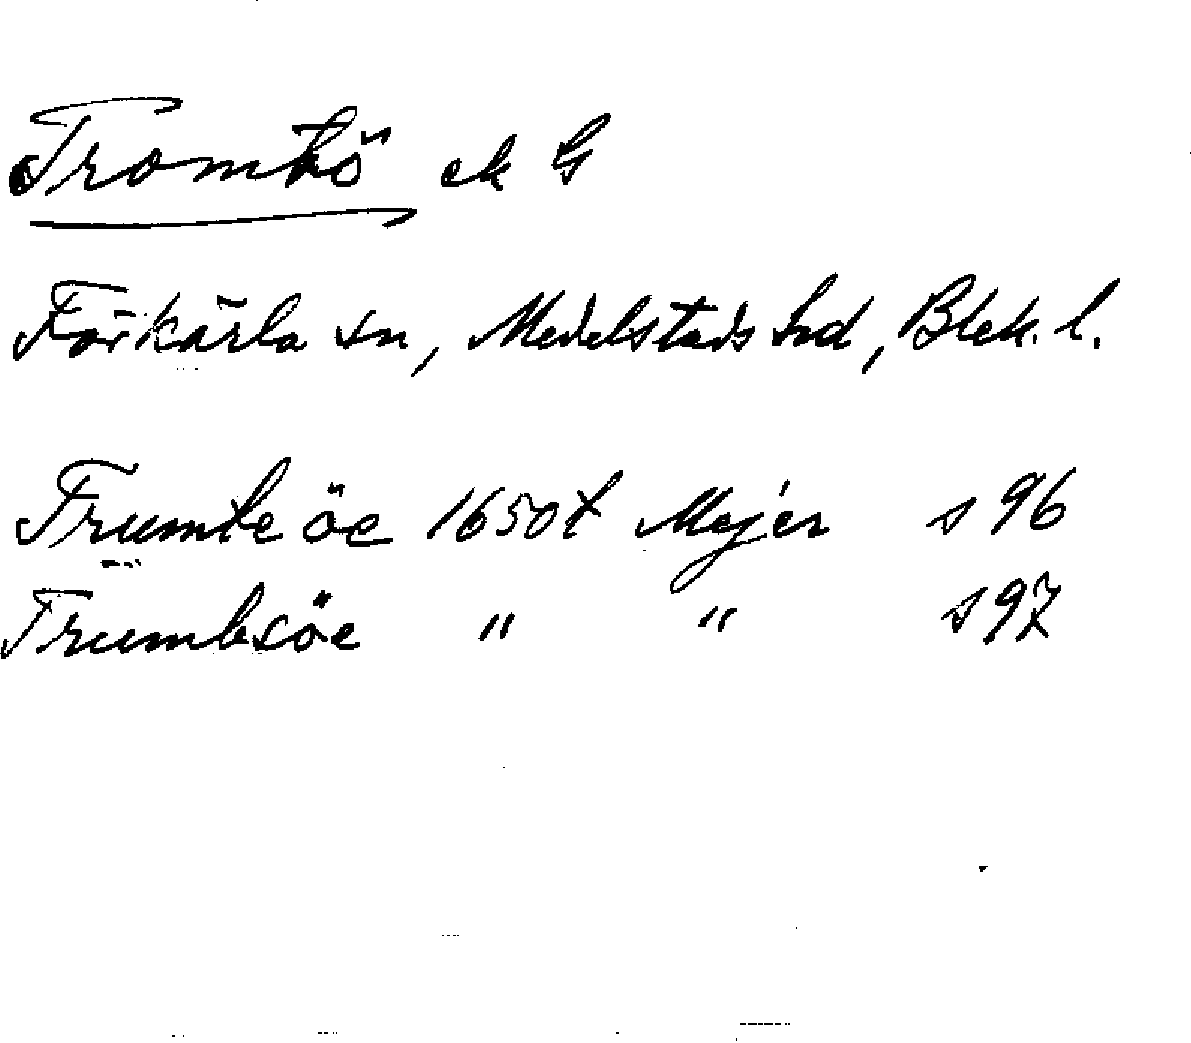 Tromtö ek G
Förkärla sn, Medelstads hd, Blek. l.
Trumte öe 1650t Mejer s 96
Trumbsöe " " s 97